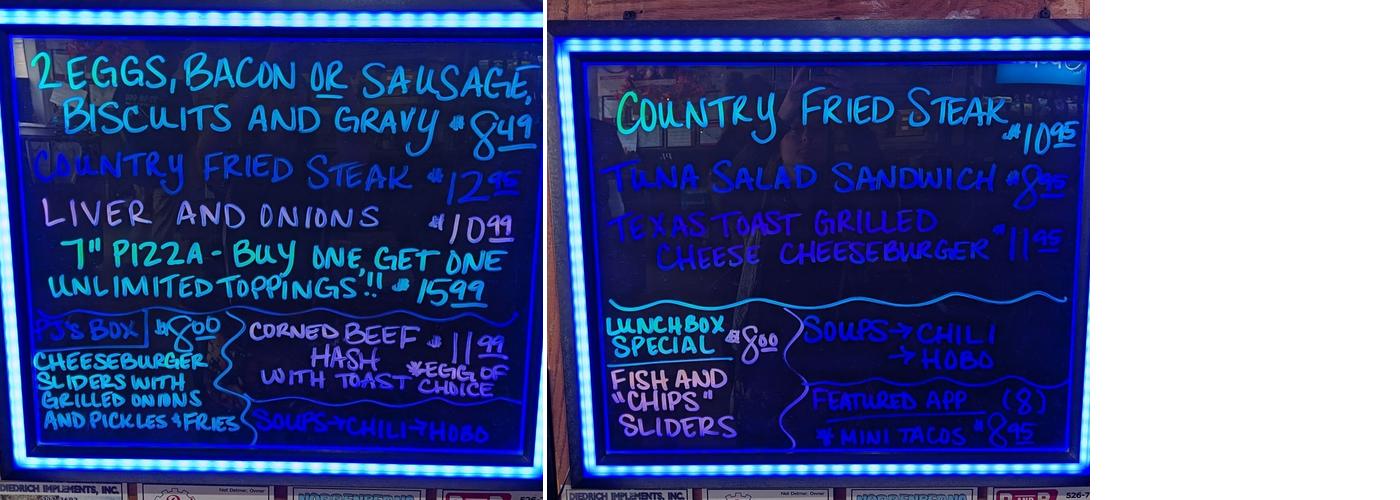 2 EGGS, BACON OR SAUSAGE,
BISCUITS AND GRAVY $8.49
COUNTRY FRIED STEAK $12.95
LIVER AND ONIONS $10.99
7" PIZZA - BUY ONE, GET ONE
UNLIMITED TOPPINGS!! $15.99
PJ'S BOX $8.00
CHEESEBURGER
SLIDERS WITH
GRILLED ONIONS
AND PICKLES & FRIES
CORNED BEEF $11.99
HASH
WITH TOAST *EGG OF
CHOICE
SOUPS → CHILI → HOBO
DIEDRICH IMPLEMENTS, INC.
COUNTRY FRIED STEAK
$10.95
TUNA SALAD SANDWICH $8.95
TEXAS TOAST GRILLED
CHEESE CHEESEBURGER $11.95
LUNCHBOX
SPECIAL $8.00
FISH AND
"CHIPS"
SLIDERS
SOUPS → CHILI
→ HOBO
FEATURED APP (8)
* MINI TACOS $8.95